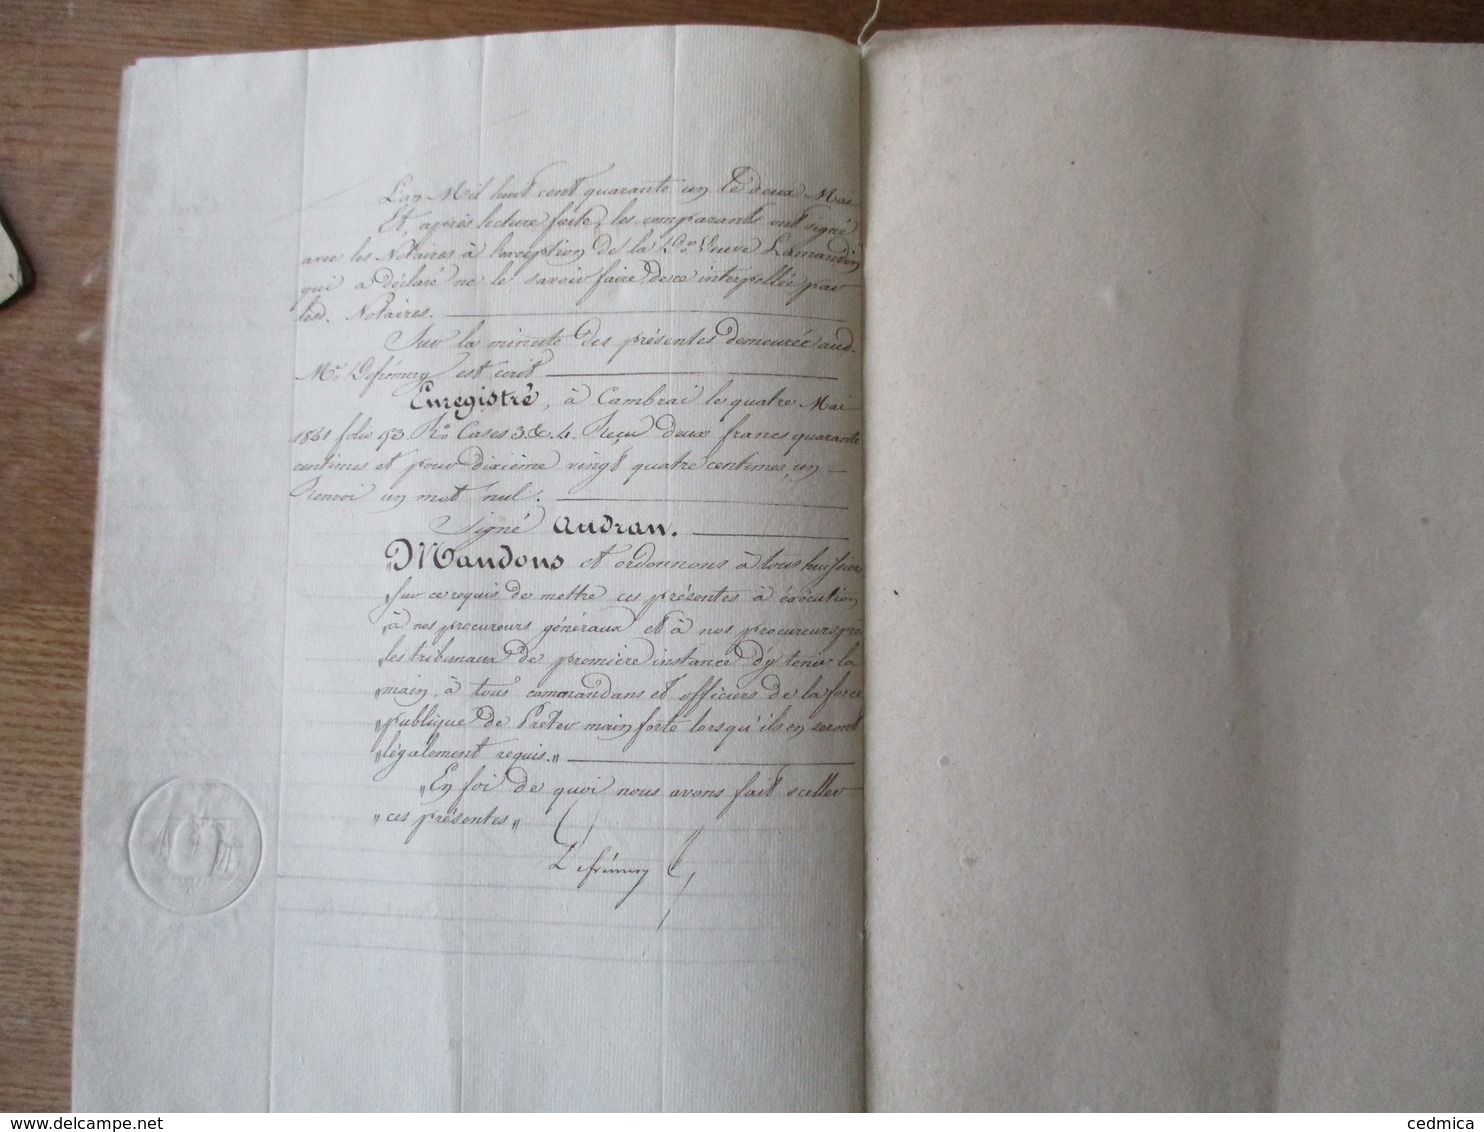 L'an Mil huit cent quarante un le deux Mai
Et, après lecture faite, les comparants ont signé
avec les Notaires à l'exception de la De. Veuve Lamandin
qui a déclaré ne le savoir faire de ce interpellée par
lesd. Notaires.
Sur la minute des présentes demeurée aud.
Me. Defrémery est écrit
Enregistré, à Cambrai le quatre Mai
1841 folio 173 Ro. Cases 3 & 4. Reçu deux francs quarante
centimes et pour dixième vingt quatre centimes, un
Renvoi un mot nul.
Signé Audran.
"Mandons et ordonnons à tous huissiers
"sur ce requis de mettre ces présentes à éxécution
"à nos procureurs généraux et à nos procureurs près
"les tribunaux de première instance d'y tenir la
"main, à tous commandans et officiers de la force
"publique de Prêter main forte lorsqu'ils en seront
"légalement requis."
"En foi de quoi nous avons fait sceller
"ces présentes"
Defrémery
cedmica